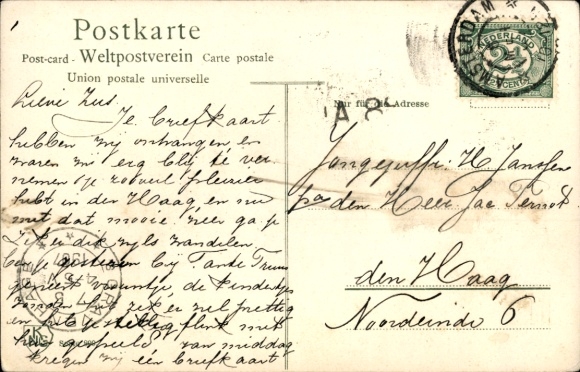 Postkarte
Post-card - Weltpostverein Carte postale
Union postale universelle
Nur für die Adresse
AMSTERDAM
NEDERLAND
2½
CENT
Lieve Zus
Je briefkaart
hebben wij ontvangen en
waren wij erg blij te ver
nemen je zooveel plezier
hebt in den Haag, en nu
met dat mooie weer ga je
zeker dikwijls wandelen
ben je gisteren bij Tante Truus
geweest vrouwtje de kindertjes
vonden het zeker wel prettig
en heb je flink met
hen gespeeld van middag
kregen wij één briefkaart
Jongejuffr. H. Janssen
p/a den Heer Jac
den Haag
Noordeinde 6